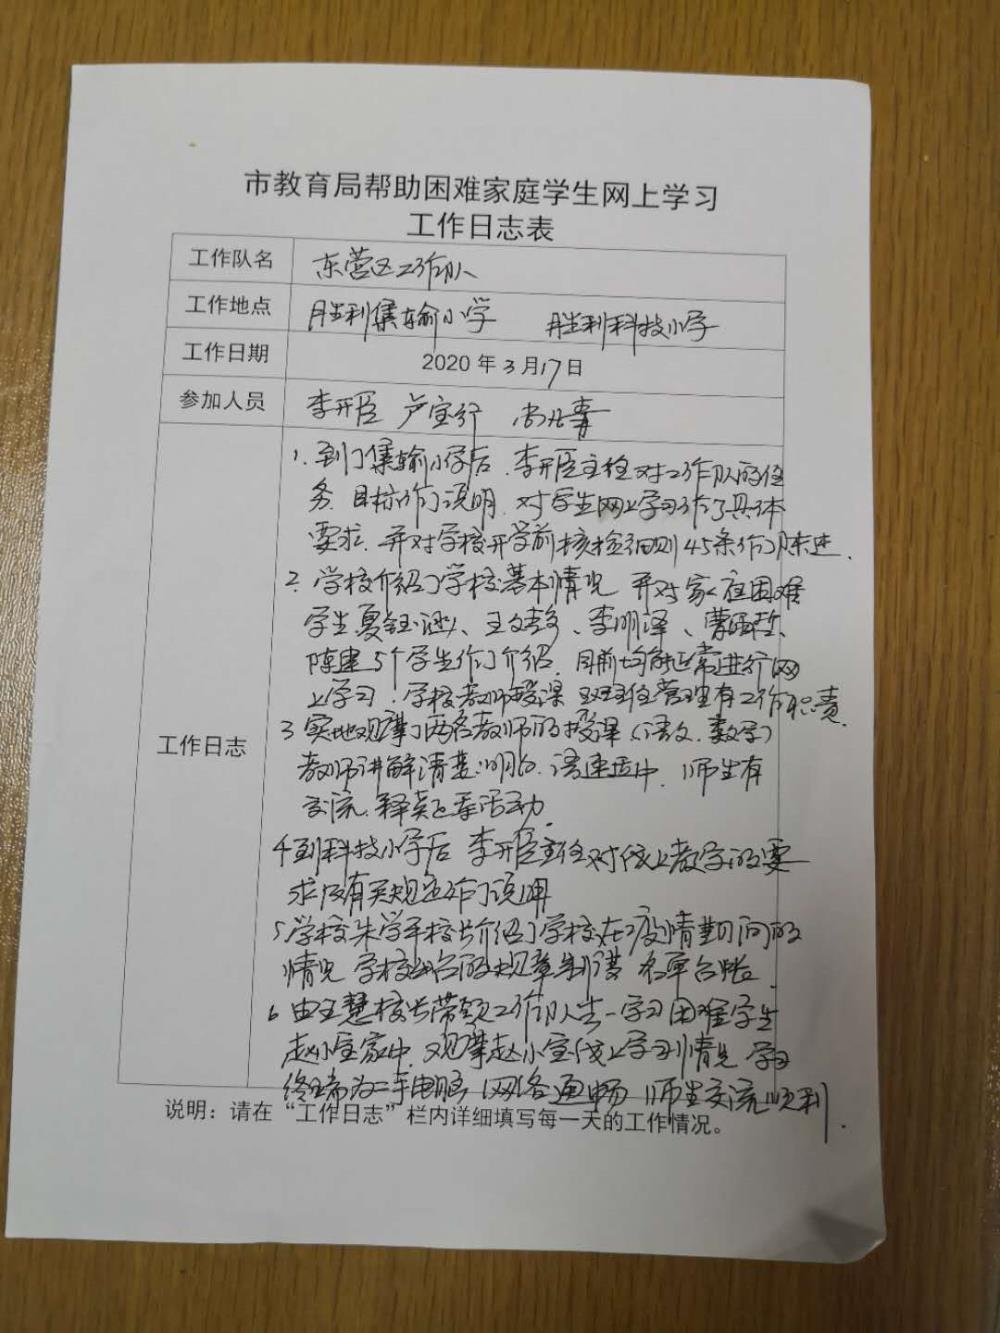 市教育局帮助困难家庭学生网上学习
工作日志表
工作队名 东营区工作队
工作地点 胜利集输小学 胜利科技小学
工作日期 2020年3月17日
参加人员 李开臣 卢宝行
工作日志
1.到了集输小学后,李开臣主任对工作队的任
务、目标作了说明,对学生网上学习作了具体
要求,并对学校开学前核检细则45条作了陈述.
2.学校介绍了学校基本情况 并对家庭困难
学生夏钰涵、王文、李明泽、曹
陈建5个学生作了介绍,目前均能正常进行网
上学习.学校教师授课 班主任管理有工作职责
3 实地观摩了两名教师的授课(语文、数学)
教师讲解清楚明白、语速适中,师生有
交流、释疑活动.
4到科技小学后 李开臣主任对线上教学的要
求及有关规定作了说明
5学校朱学平校长介绍了学校在疫情期间的
情况 学校出台的规章制度 名单台帐.
6 由王慧校长带领工作队去一学习困难学生
赵小宝家中,观摩赵小宝线上学习情况 学习
终端为二手电脑 网络通畅 师生交流顺利.
说明:请在“工作日志”栏内详细填写每一天的工作情况。